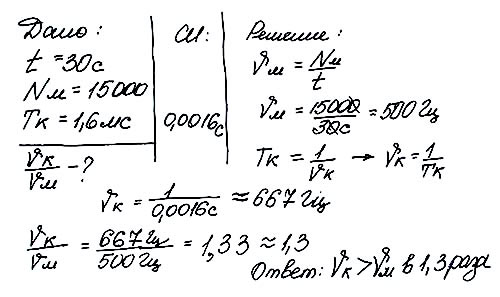 Дано: СИ: Решение:
t = 30с
Nм = 15000
Tк = 1,6мс 0,0016с
νк/νм - ?
νм = Nм/t
νм = 15000/30с = 500 Гц
Tк = 1/νк → νк = 1/Tк
νк = 1/0,0016с ≈ 667 Гц
νк/νм = 667 Гц/500 Гц = 1,33 ≈ 1,3
Ответ: νк > νм в 1,3 раза